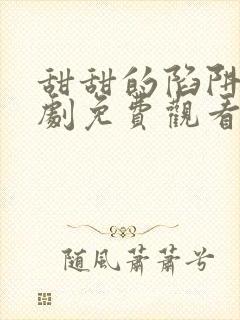 甜甜的陷阱
劇免費觀看
随風蕭蕭兮